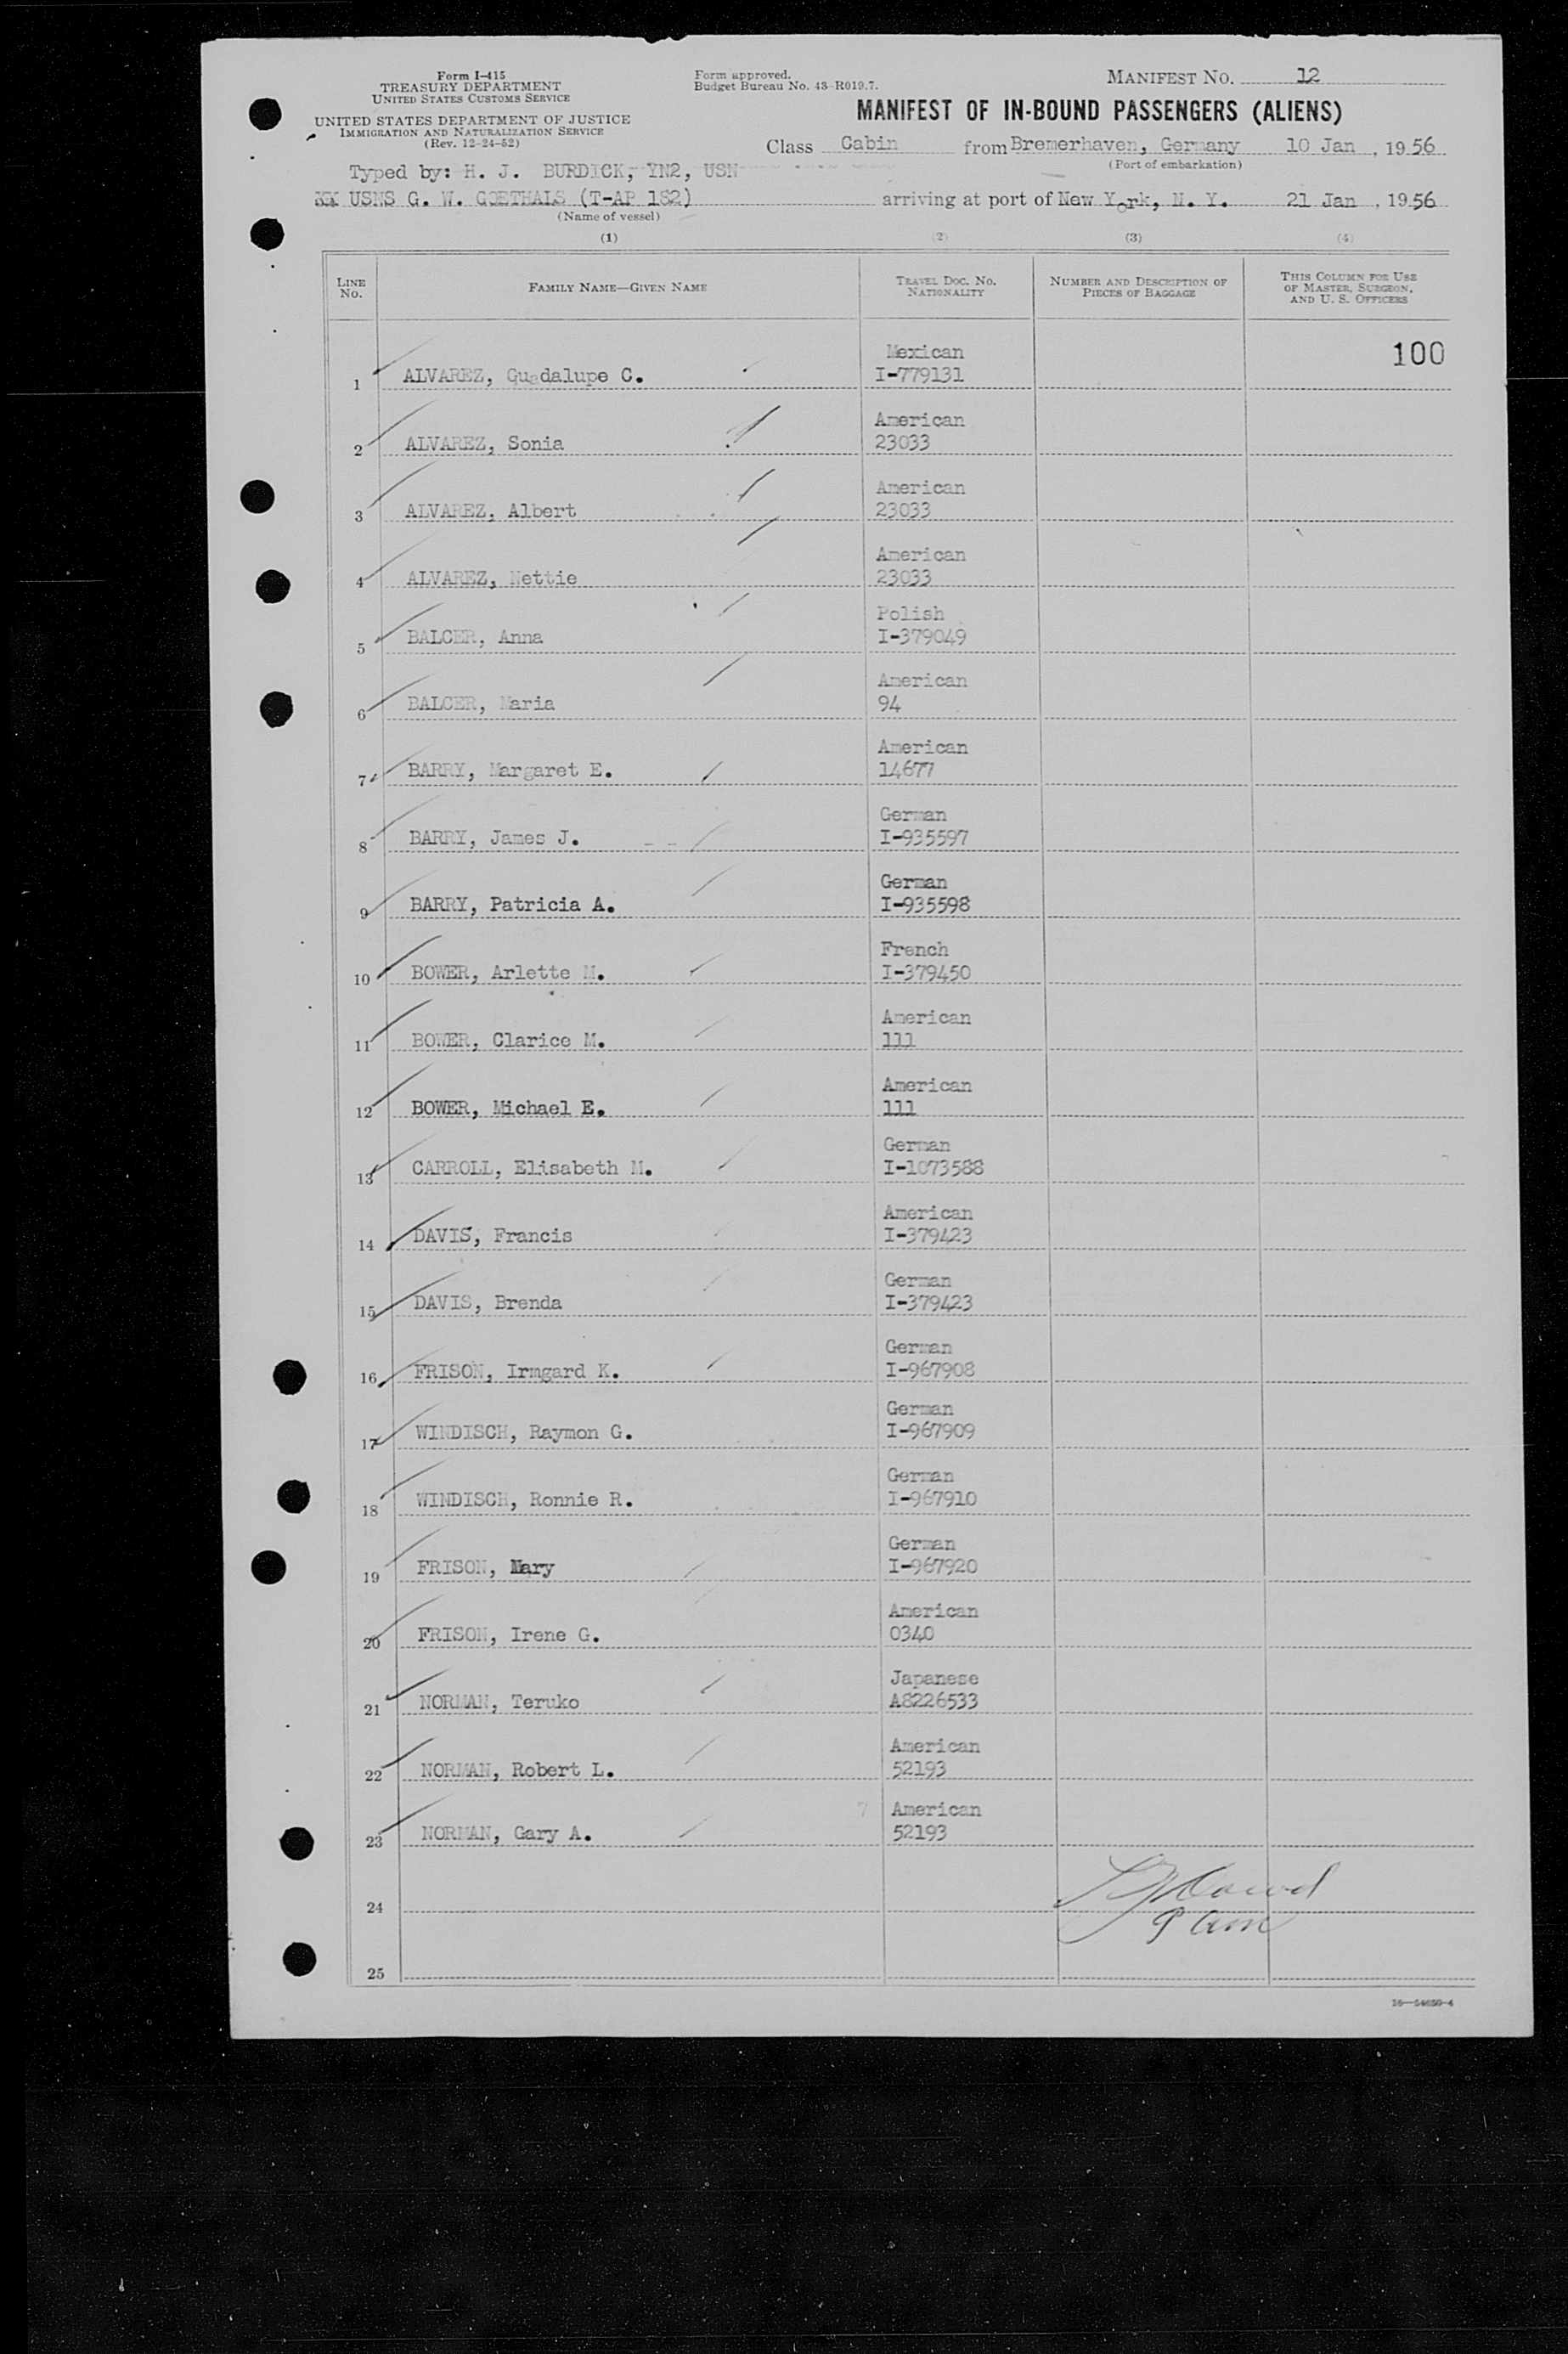 Form I-415
TREASURY DEPARTMENT
UNITED STATES CUSTOMS SERVICE
UNITED STATES DEPARTMENT OF JUSTICE
IMMIGRATION AND NATURALIZATION SERVICE
(Rev. 12-24-52)
Form approved.
Budget Bureau No. 43-R019.7.
MANIFEST NO. 12
MANIFEST OF IN-BOUND PASSENGERS (ALIENS)
Class Cabin from Bremerhaven, Germany 10 Jan, 1956
(Port of embarkation)
Typed by: H. J. BURDICK, YN2, USN
XX USNS G. W. GOETHALS (T-AP 182) arriving at port of New York, N. Y. 21 Jan, 1956
(Name of vessel)
(1) (2) (3) (4)
LINE NO. FAMILY NAME—GIVEN NAME TRAVEL DOC. NO. NATIONALITY NUMBER AND DESCRIPTION OF PIECES OF BAGGAGE THIS COLUMN FOR USE OF MASTER, SURGEON, AND U. S. OFFICERS
Mexican 100
1 ALVAREZ, Guadalupe C. I-779131
American
2 ALVAREZ, Sonia 23033
American
3 ALVAREZ, Albert 23033
American
4 ALVAREZ, Nettie 23033
Polish
5 BALCER, Anna I-379049
American
6 BALCER, Maria 94
American
7 BARRY, Margaret E. 14677
German
8 BARRY, James J. I-935597
German
9 BARRY, Patricia A. I-935598
French
10 BOWER, Arlette M. I-379450
American
11 BOWER, Clarice M. 111
American
12 BOWER, Michael E. 111
German
13 CARROLL, Elisabeth M. I-1073588
American
14 DAVIS, Francis I-379423
German
15 DAVIS, Brenda I-379423
German
16 FRISON, Irmgard K. I-967908
German
17 WINDISCH, Raymon G. I-967909
German
18 WINDISCH, Ronnie R. I-967910
German
19 FRISON, Mary I-967920
American
20 FRISON, Irene G. 0340
Japanese
21 NORMAN, Teruko A8226533
American
22 NORMAN, Robert L. 52193
7 American
23 NORMAN, Gary A. 52193
24
25